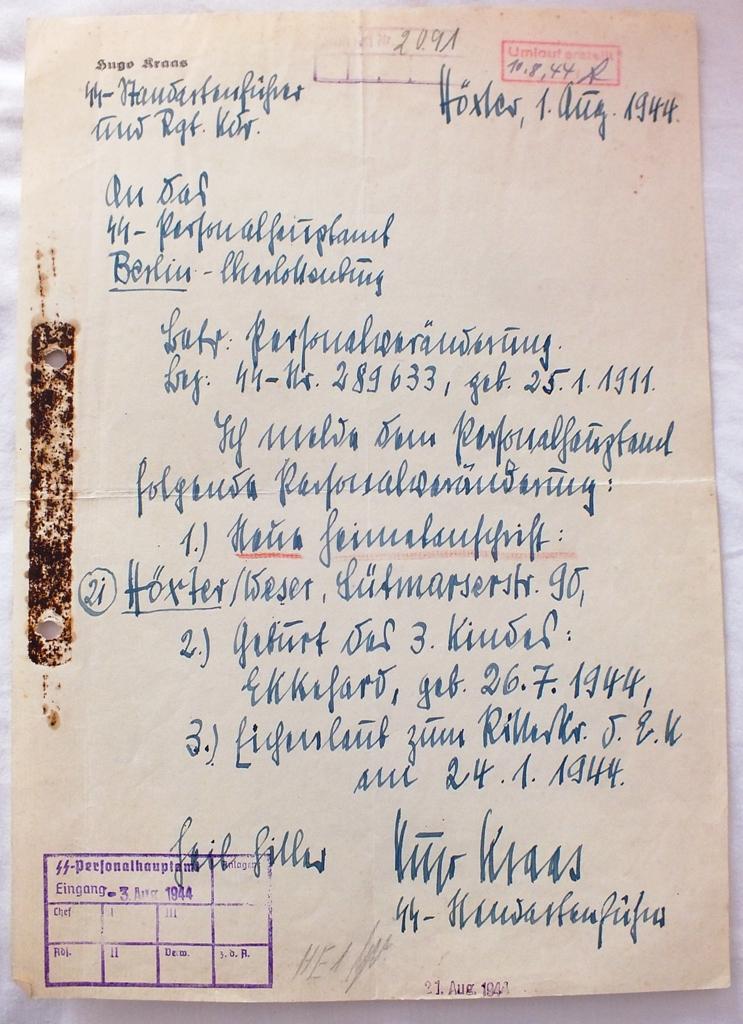 2091
Umlauf erstellt
10.8.44
Hugo Kraas
SS-Standartenführer
und Rgt. Kdr.
Höxter, 1. Aug. 1944.
An das
SS-Personalhauptamt
Berlin-Charlottenburg
Betr: Personalveränderung.
Bez: SS-Nr. 289633, geb. 25.1.1911.
Ich melde dem Personalhauptamt
folgende Personalveränderung:
1.) Neue Heimatanschrift:
21 Höxter/Weser, Lütmarserstr. 90,
2.) Geburt des 3. Kindes:
Ekkehard, geb. 26.7.1944,
3.) Eichenlaub zum Ritterkr. d. E.K
am 24.1.1944.
Heil Hitler
Hugo Kraas
SS-Standartenführer
SS-Personalhauptamt Anlagen
Eingang - 3. Aug. 1944
Chef I III
Adj. II Dezw. z.d.A.
21. Aug. 1944